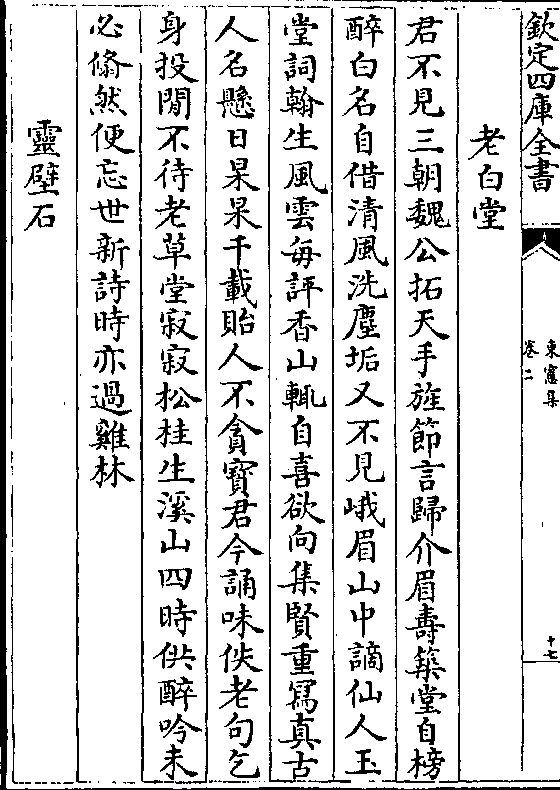 欽定四庫全書
東窻集
卷二
十七
老白堂
君不見三朝魏公拓天手旌節言歸介眉壽築堂自榜
醉白名自借清風洗塵垢又不見峨眉山中謫仙人玉
堂詞翰生風雲每評香山輒自喜欲向集賢重冩真古
人名懸日杲杲千載貽人不貪寳君今誦味佚老句乞
身投閒不待老草堂寂寂松桂生溪山四時供醉吟未
必翛然便忘世新詩時亦過雞林
靈壁石